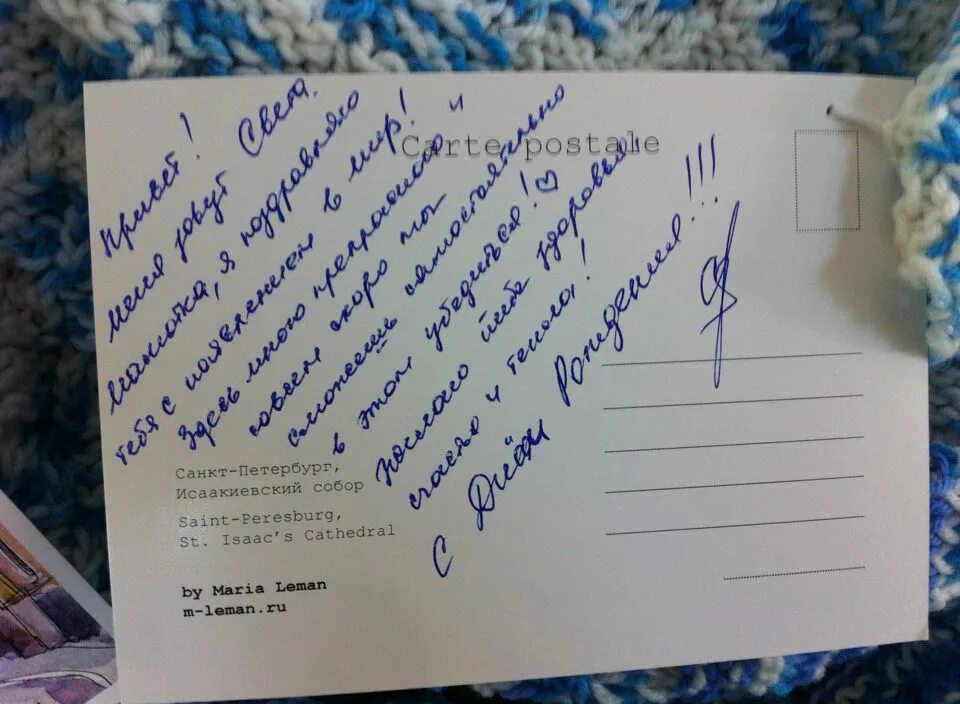 Привет!
меня зовут Света.
малютка, я поздравляю
тебя с появлением в мир!
Здесь много прекрасного и
совсем скоро ты
сможешь самостоятельно
в этом убедиться! ♡
Желаю тебе здоровья,
счастья и тепла!
С Днём Рождения!!!
Carte postale
Санкт-Петербург,
Исаакиевский собор
Saint-Peresburg,
St. Isaac's Cathedral
by Maria Leman
m-leman.ru